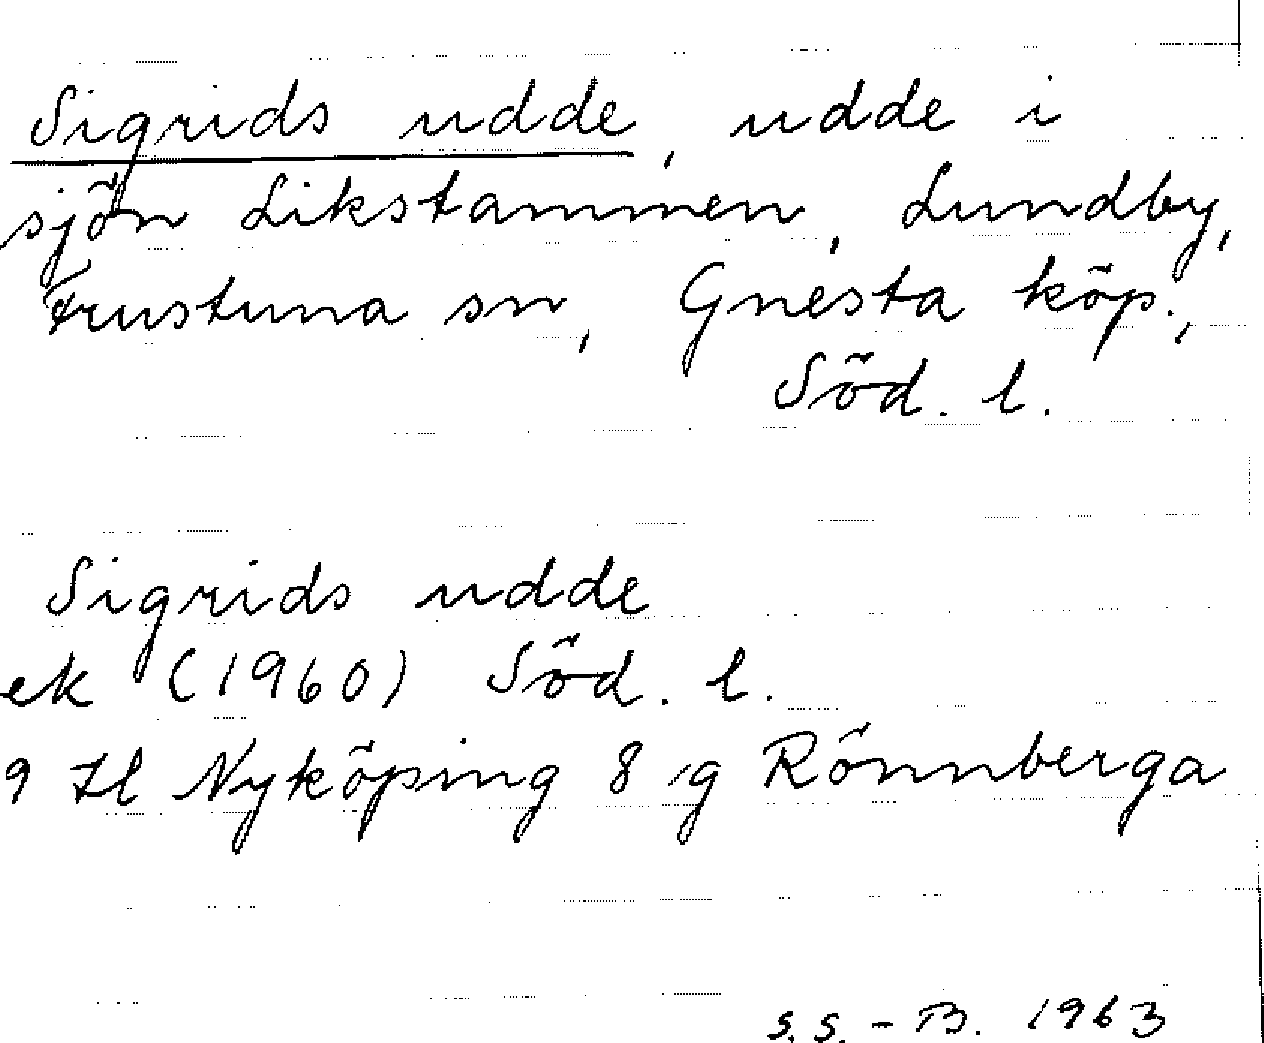 Sigrids udde, udde i
sjön Likstammen, Lundby,
Frustuna sn, Gnesta köp.,
Söd. l.
Sigrids udde
ek (1960) Söd. l.
9 Hl Nyköping 8 g Rönnberga
S.S.-B. 1963